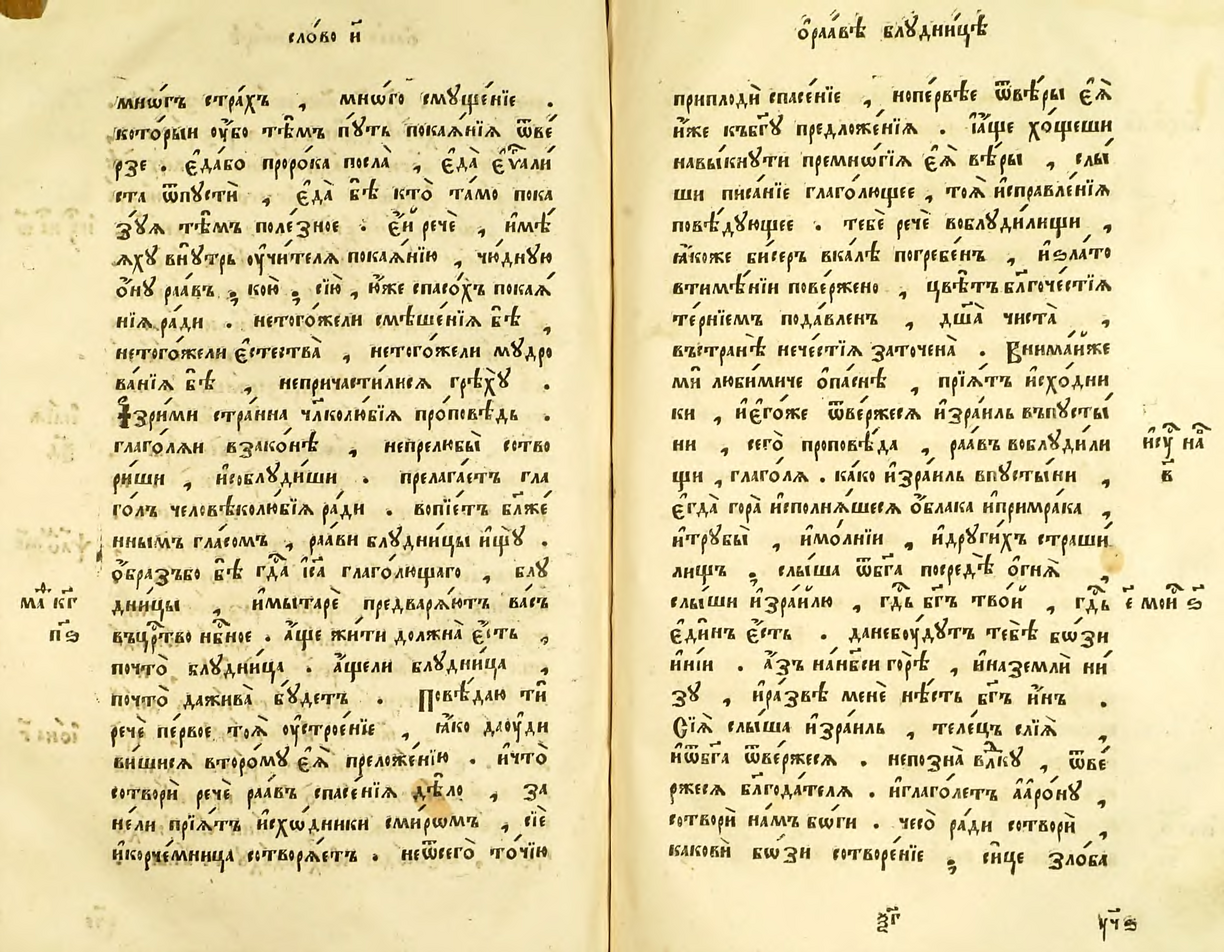 сло́во и҃
мнѡ́гъ стра́хъ , мнѡ́го смꙋще́нїе .
кото́рыи ᲂу҆́бо тѣ̑мъ пꙋ́ть покаѧ́нїѧ ѿве́
рзе . є҆да́бо проро́ка посла̀ , є҆да̀ є҆ѵⷢ҇али
ста ѿпꙋстѝ , є҆да̀ бѣ̀ кто̀ та́мо пока
зꙋѧ тѣ̑мъ поле́зное . є҆́й речѐ , и҆мѣ́
ѧхꙋ внꙋ́трь ᲂу҆чи́телѧ покаѧ́нїю , чю́днꙋю
ѻ҆́нꙋ раа́въ ; ко́ю ; сїю̀ , ю҆́же спасо́хъ покаѧ́
нїѧ ра́ди . нетого́жели смѣше́нїѧ бѣ̀ ,
нетого́жели є҆стества̀ , нетого́жели мꙋдро
ва́нїѧ бѣ̀ , неприча́стилисѧ грѣхꙋ̀ .
І҆зри́ми стра́нна чл҃колю́бїѧ про́повѣдь .
глаго́лѧи взако́нѣ , непрелюбы̀ сотво
ри́ши , и҆соблꙋ́диши . прелага́етъ гла
го́лъ человѣколю́бїѧ ра́ди . вопїе́тъ бл҃же
ннымъ гла́сомъ , раа́ви блꙋдни́цы и҆щꙋ̀ .
ѻ҆́бразъбо бѣ̀ гдⷭ҇а і҆с҃а глаго́лющаго , блꙋ
дни́цы , и҆мытарѐ предварѧ́ютъ ва́съ
въцрⷭ҇тво нбⷭ҇ное . а҆́ще жи́ти должна̀ є҆́сть ,
почто̀ блꙋдни́ца . а҆́щели блꙋдни́ца ,
почто̀ дажива̀ бꙋ́детъ . Повѣ́даю ти̑
речѐ пе́рвое тоѧ̀ ᲂу҆строе́нїе , ꙗ҆́ко даᲂу҆ди
ви́шисѧ второ́мꙋ є҆ѧ̀ преложе́нїю . и҆что̀
сотворѝ речѐ раа́въ спасе́нїѧ дѣ́ло , за
не́ли прїѧ́тъ и҆схѡ́дники сми́ромъ , сїѐ
и҆корче́мница сотворѧ́етъ . неѿсего̀ то́чїю
ма҃ кг҃
п҃ѕ
ѻ҆раа́вѣ блꙋдни́цѣ
приплодѝ спасе́нїе , нопе́рвѣе ѿвѣ́ры є҆ѧ̀
и҆́же къбг҃ꙋ предложе́нїѧ . і҆а҆́ще хо́щеши
навы́кнꙋти премнѡ́гїѧ є҆ѧ̀ вѣ́ры , слы́
ши писа́нїе глаго́лющее , тоѧ̀ и҆справле́нїѧ
повѣ́дꙋющее . тебѐ речѐ воблꙋди́лищи ,
ꙗ҆́коже би́серъ вка́лѣ погребе́нъ , и҆зла́то
втимѣ́нїи пове́ржено , цвѣ́тъ бл҃гоче́стїѧ
те́рнїемъ пода́вленъ , дш҃а̀ чиста̀ ,
въстранѣ̀ нече́стїѧ заточена̀ . Внима́йже
мѝ люби́миче ѻ҆па́снѣ , прїѧ́тъ и҆схо́дни
ки , и҆є҆го́же ѿве́ржесѧ и҆зра́иль въпꙋсты́
ни , сего̀ проповѣ́да , раа́въ воблꙋди́ли
щи , глаго́лѧ . ка́ко и҆зра́иль впꙋсты́ни ,
є҆гда̀ гора̀ и҆сполнѧ́шесѧ ѻ҆́блака и҆примра́ка ,
и҆трꙋбы̀ , и҆мо́лнїи , и҆дрꙋги́хъ страши́
лищъ ; слы́ша ѿбг҃а посредѣ̀ ѻ҆гнѧ̀
слы́ши и҆зра́илю , гдⷭ҇ь бг҃ъ тво́й , гдⷭ҇ь
є҆ди́нъ є҆́сть . данебᲂу́дꙋтъ тебѣ̀ бѡ́зи
и҆ні́и . а҆́зъ на́нбⷭ҇и горѣ̀ , и҆наземлѝ ни́
зꙋ , и҆ра́звѣ менѐ нѣ́сть бг҃ъ и҆́нъ .
Сїѧ̑ слы́ша и҆зра́иль , теле́цъ слїѧ̀ ,
и҆ѿбг҃а ѿве́ржесѧ . непозна̀ влⷣкꙋ , ѿве́
ржесѧ бл҃года́телѧ . и҆глаго́летъ а҆арѡ́нꙋ ,
сотворѝ на́мъ бѡ́ги . чесо̀ ра́ди сотворѝ ,
какови̑ бѡ́зи сотворе́нїе ; си́це зло́ба
и҆сꙋⷭ҇ наⷡ҇
в҃
є҃ мои҆ ѕ҃
ѯ҃г
уч҃ѕ